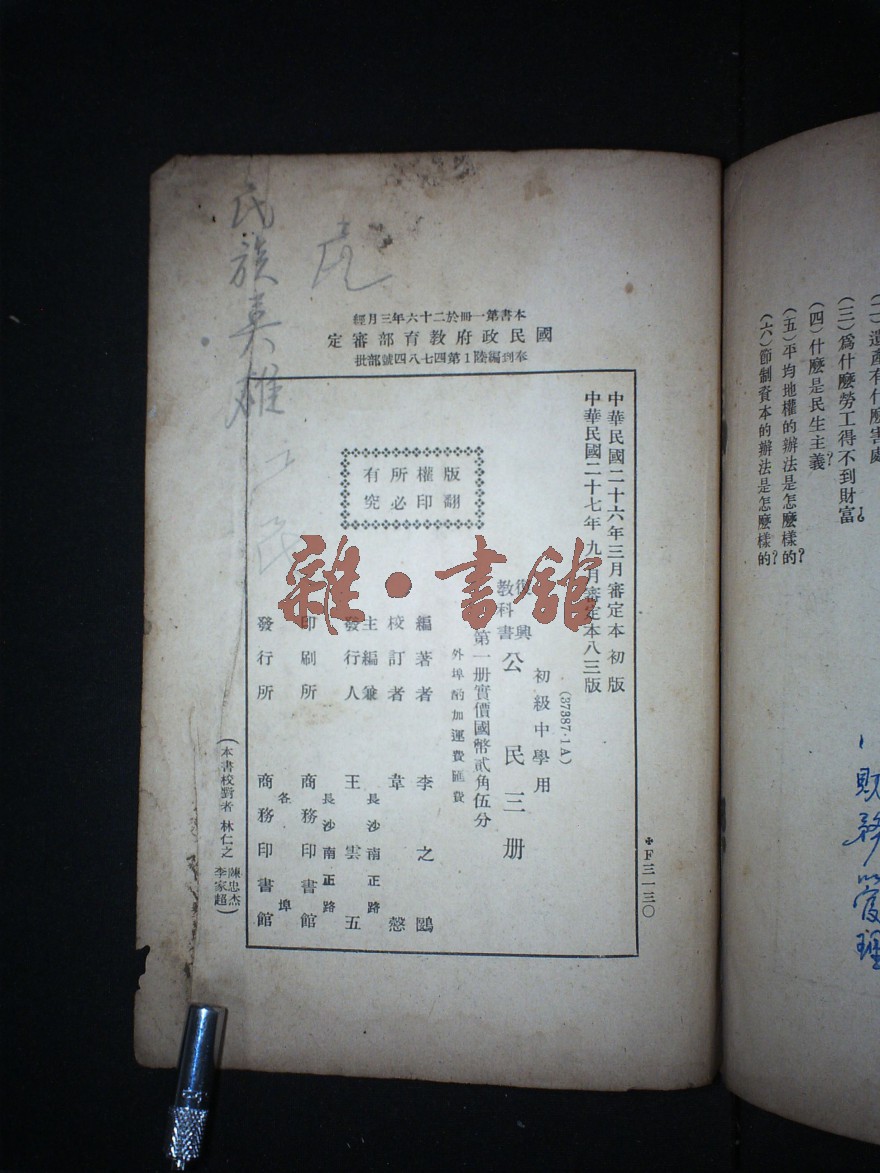 民族英雄
本書第一冊於二十六年三月經
國民政府教育部審定
春到編陸1第四七八四號部批
中華民國二十六年三月審定本初版
中華民國二十七年九月審定本八三版
版權所有
翻印必究
(37387·1A)
初級中學用
復興
教科書
公民三册
第一册實價國幣貳角伍分
外埠酌加運費匯費
編著者 李之鷗
校訂者 韋慤
主編兼
發行人 王雲五
長沙南正路
印刷所 商務印書館
長沙南正路
發行所 商務印書館
各埠
(本書校對者 林仁之 陳忠杰 李家超)
F三一三〇
雜·書館
(二)遺產有什麽害處
(三)爲什麽勞工得不到財富?
(四)什麽是民生主義?
(五)平均地權的辦法是怎麽樣的?
(六)節制資本的辦法是怎麽樣的?
財務管理